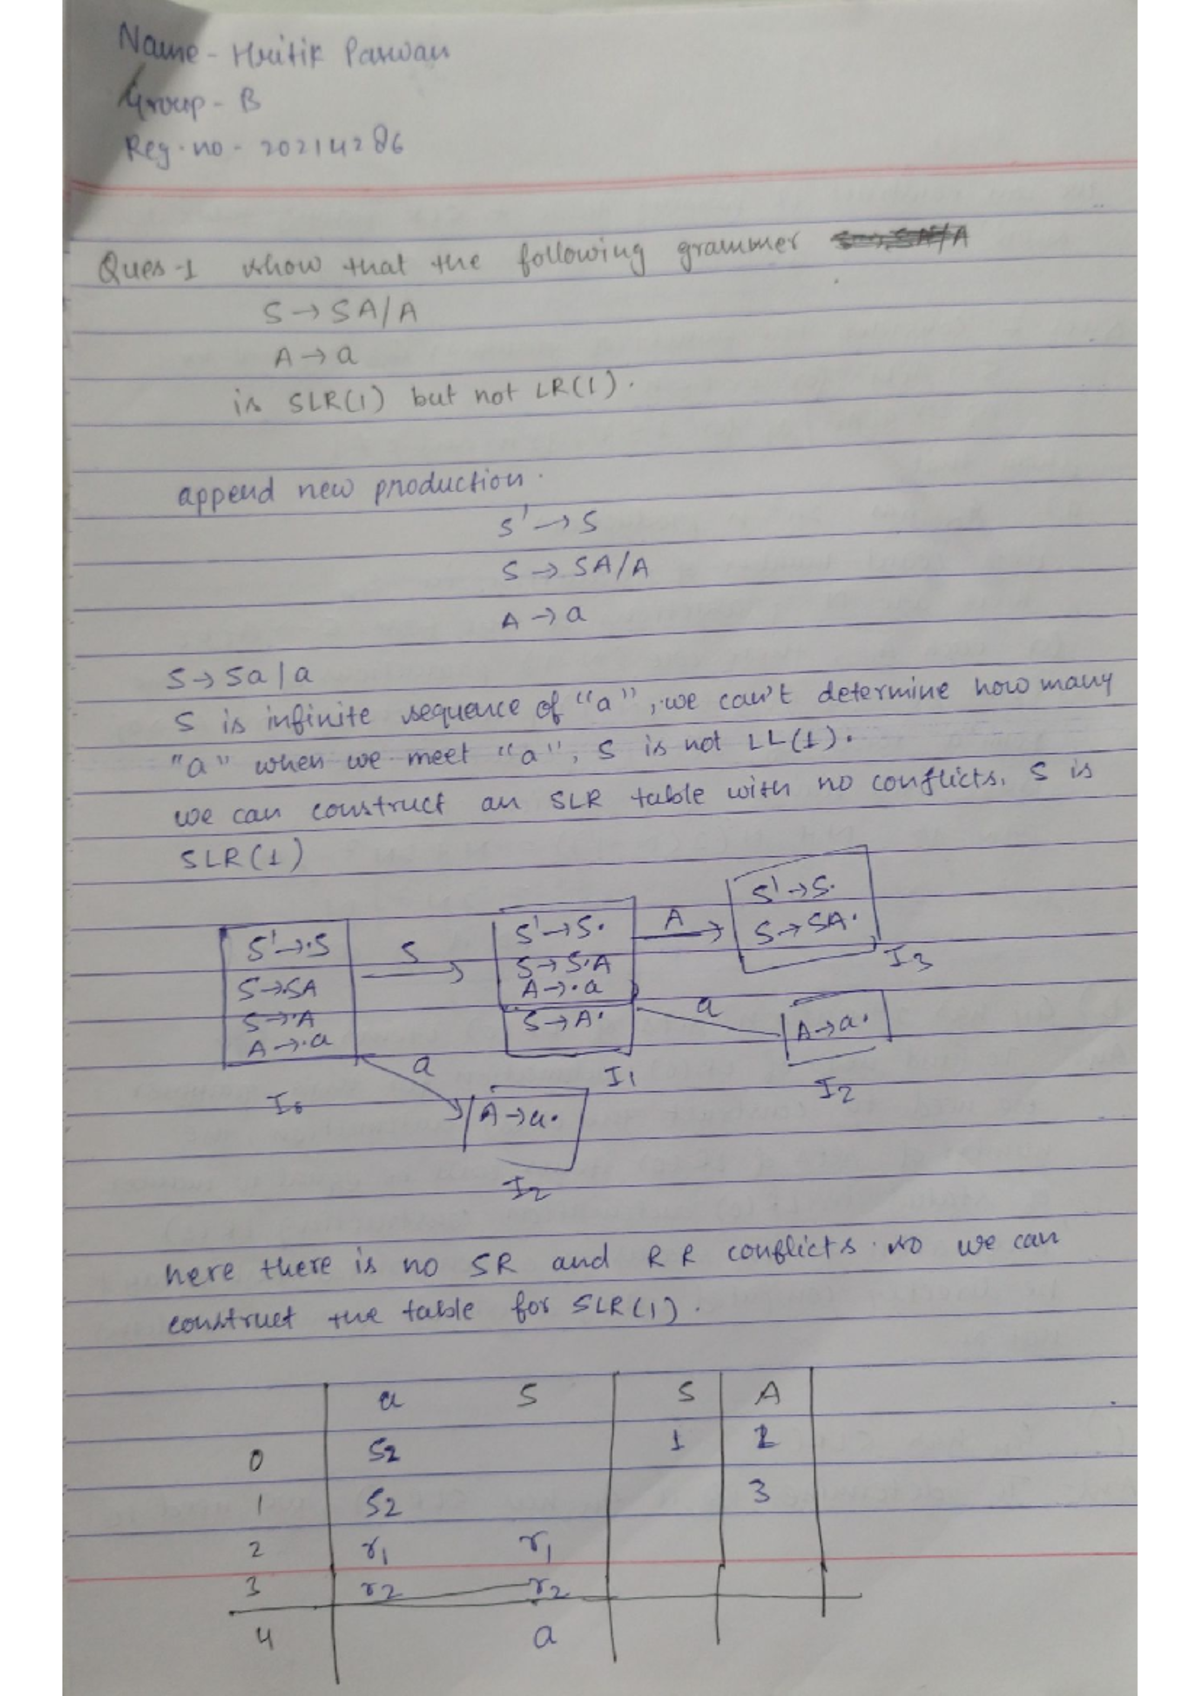 Name - Hritik Parwan
Group - B
Reg. no - 20214286
Ques-1 show that the following grammer
S → SA/A
A → a
is SLR(1) but not LR(1).
append new production.
S' → S
S → SA/A
A → a
S → Sa | a
S is infinite sequence of "a", we can't determine how many
"a" when we meet "a", S is not LL(1).
we can construct an SLR table with no conflicts. S is
SLR(1)
S' → .S
S → .SA
S → .A
A → .a
I0
S
S' → S.
S → S.A
A → .a
S → A.
I1
A
S' → S.
S → SA.
I3
a
A → a.
I2
a
A → a.
I2
here there is no SR and RR conflicts so we can
construct the table for SLR(1).
a S S A
0 S2 1 2
1 S2 3
2 r1 r1
3 r2 r2
4 a